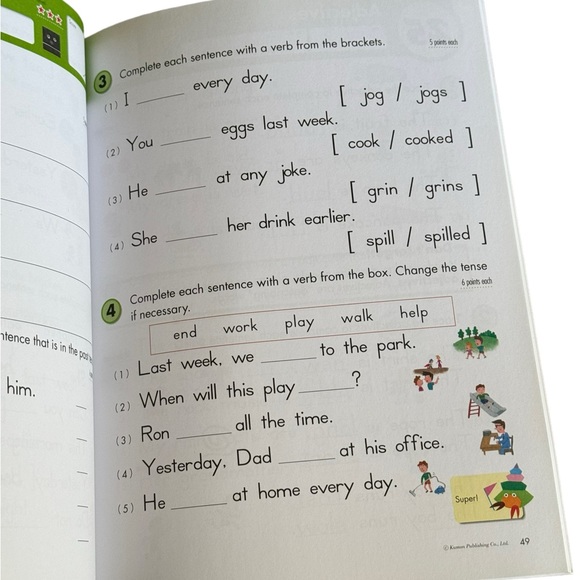 3 Complete each sentence with a verb from the brackets.
5 points each
(1) I ______ every day.
[ jog / jogs ]
(2) You ______ eggs last week.
[ cook / cooked ]
(3) He ______ at any joke.
[ grin / grins ]
(4) She ______ her drink earlier.
[ spill / spilled ]
4 Complete each sentence with a verb from the box. Change the tense
if necessary.
6 points each
end work play walk help
(1) Last week, we ______ to the park.
(2) When will this play ______ ?
(3) Ron ______ all the time.
(4) Yesterday, Dad ______ at his office.
(5) He ______ at home every day.
Super!
© Kumon Publishing Co., Ltd. 49
that is in the
him.